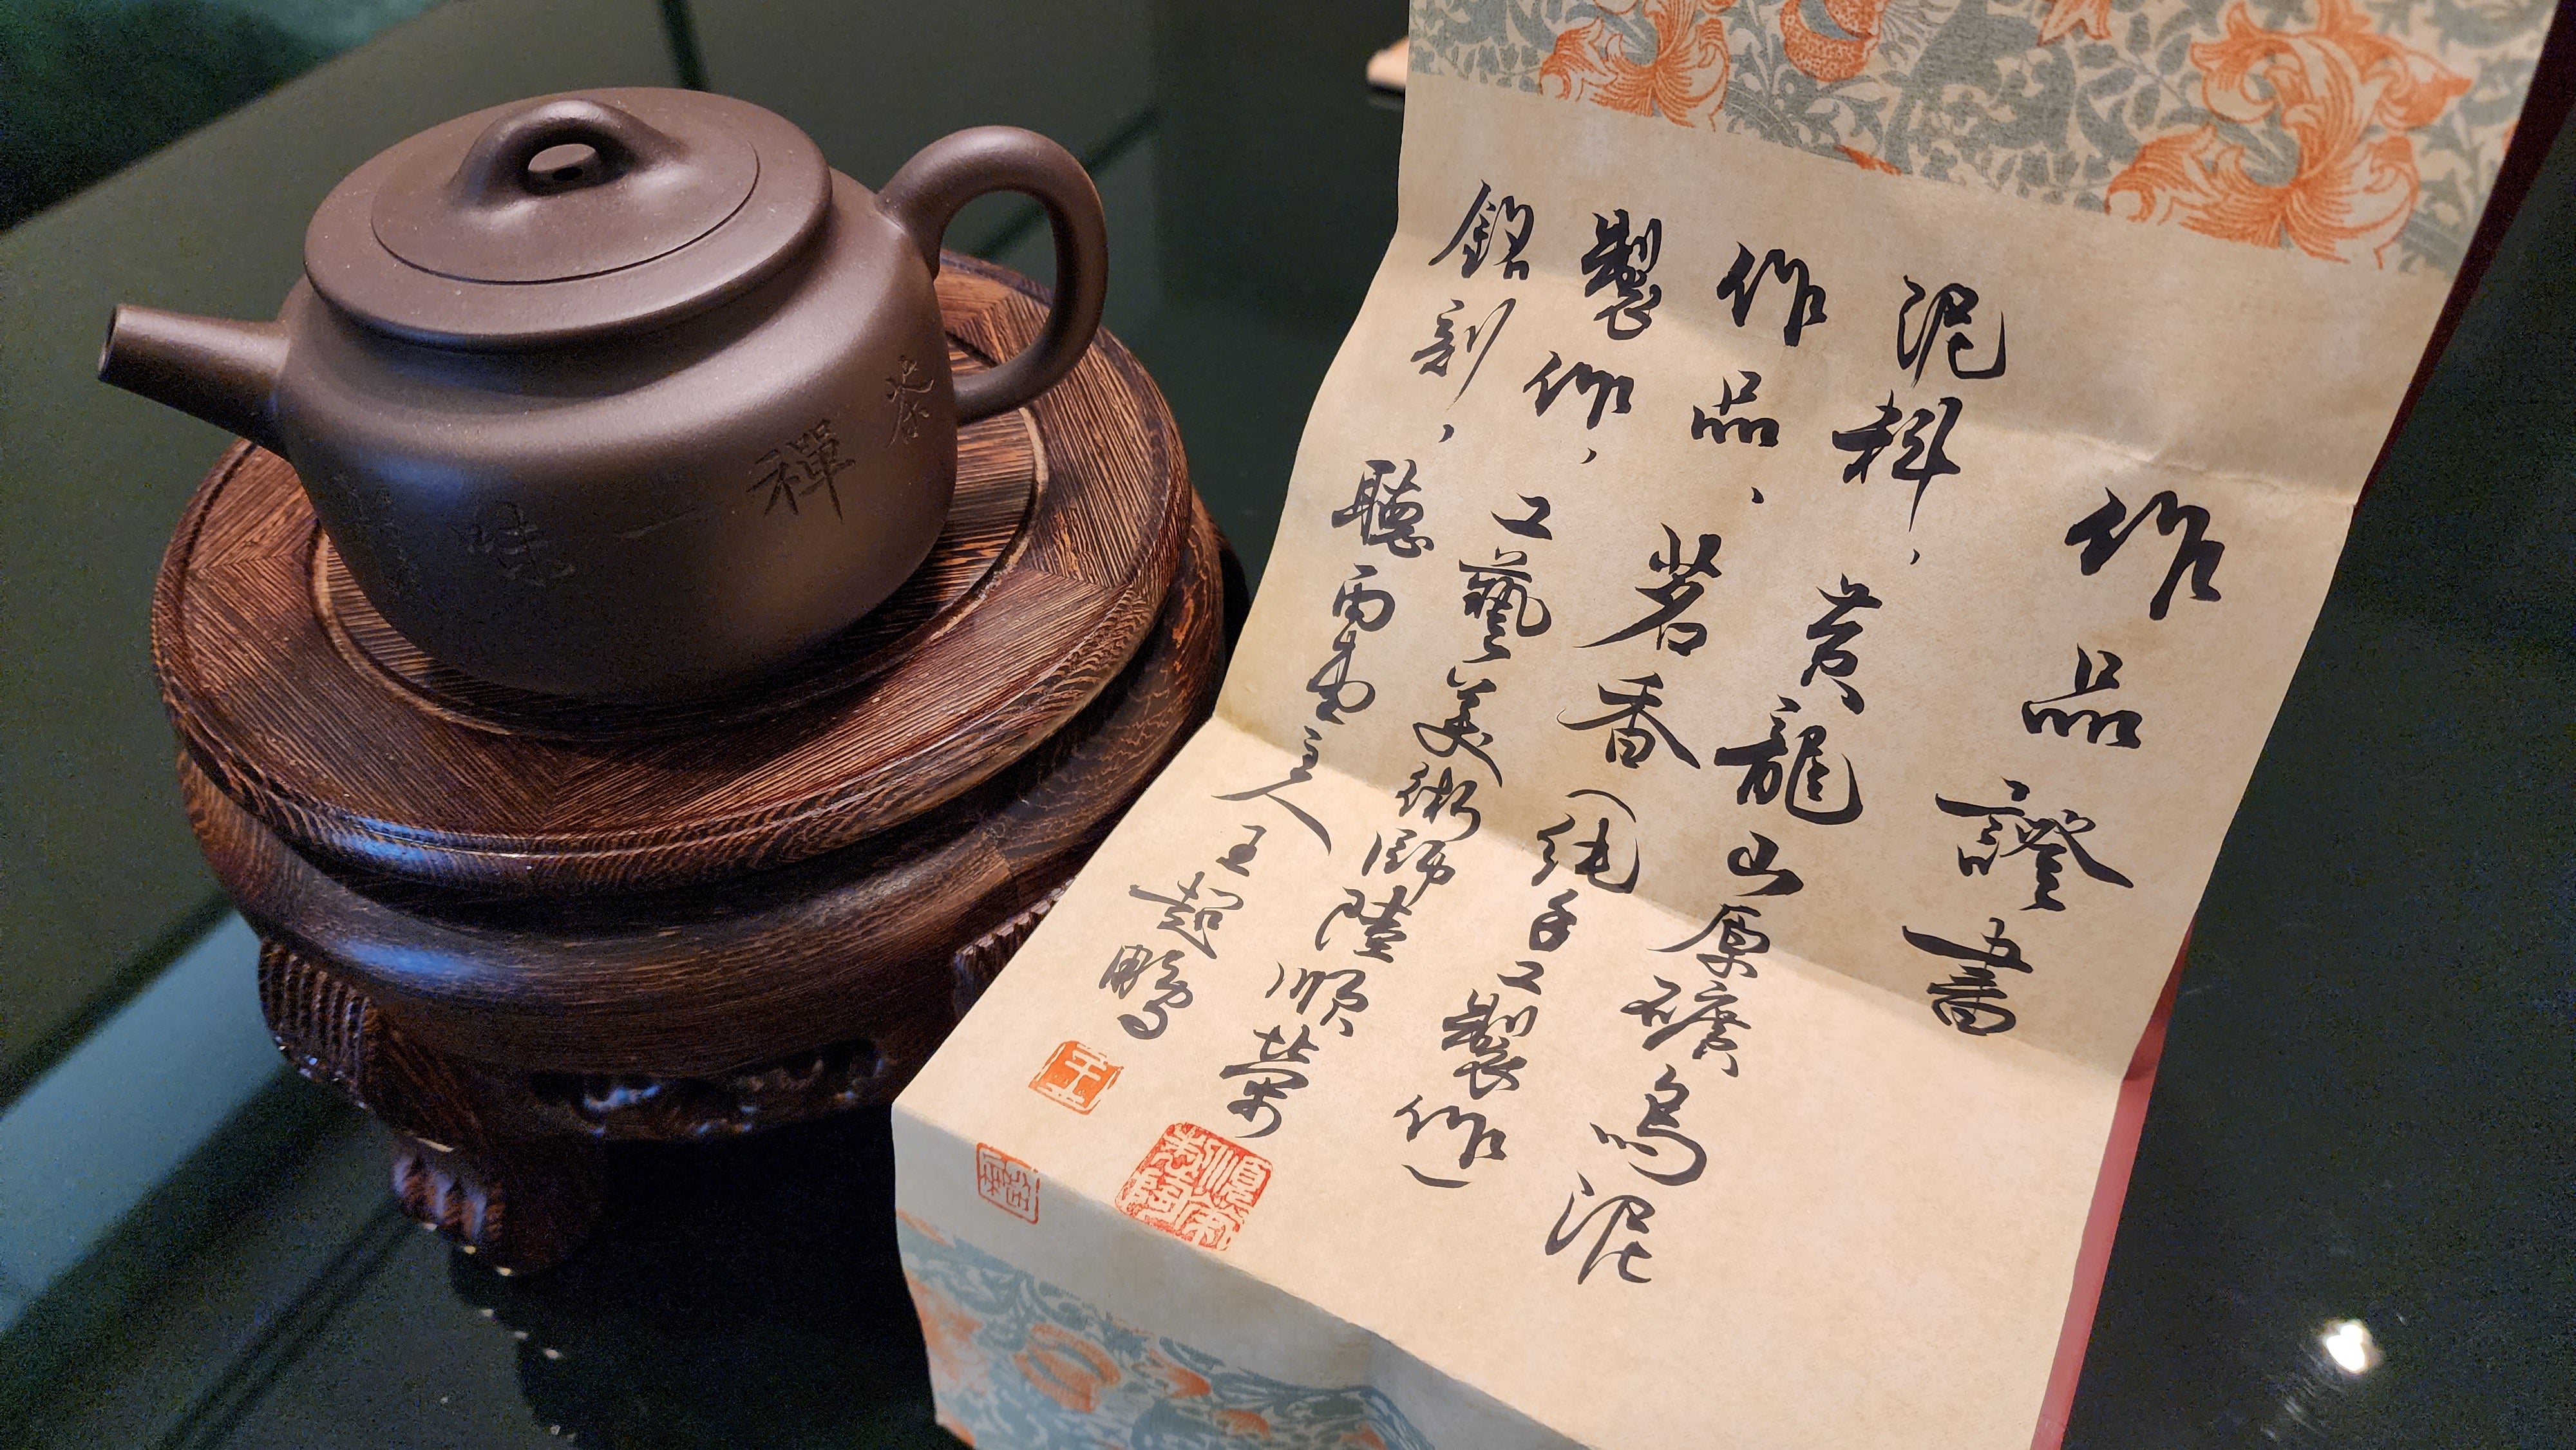 作品證書
泥料，黄龍山原礦烏泥
作品，茗香（純手工製作）
製作，工藝美術師陸順榮
銘刻，聽雨堂主人王超鵬
王
茶禪一味